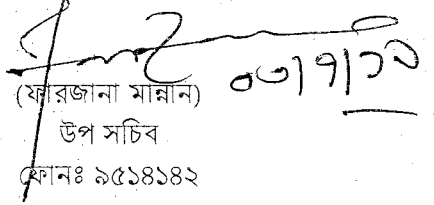 ০৩/৭/১৯
(ফারজানা মান্নান)
উপ সচিব
ফোনঃ ৯৫১৪১৪২